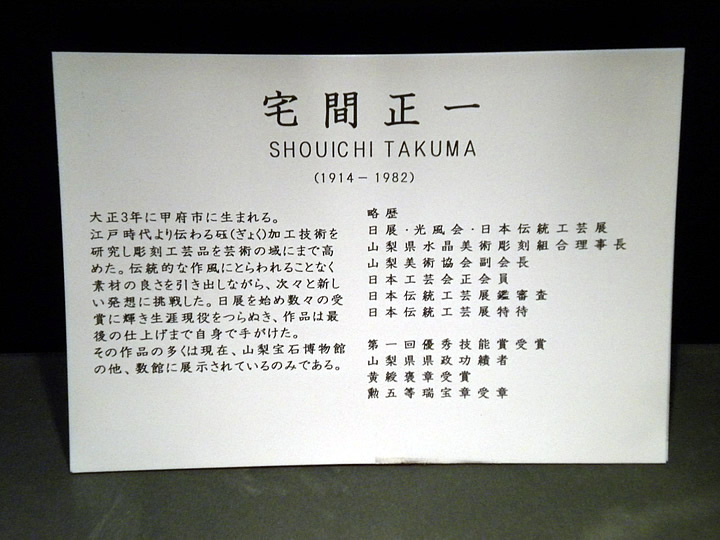 宅間正一
SHOUICHI TAKUMA
(1914－1982)
大正3年に甲府市に生まれる。
江戸時代より伝わる砡(ぎょく)加工技術を
研究し彫刻工芸品を芸術の域にまで高
めた。伝統的な作風にとらわれることなく
素材の良さを引き出しながら、次々と新し
い発想に挑戦した。日展を始め数々の受
賞に輝き生涯現役をつらぬき、作品は最
後の仕上げまで自身で手がけた。
その作品の多くは現在、山梨宝石博物館
の他、数館に展示されているのみである。
略歴
日展・光風会・日本伝統工芸展
山梨県水晶美術彫刻組合理事長
山梨美術協会副会長
日本工芸会正会員
日本伝統工芸展鑑審査
日本伝統工芸展特待
第一回優秀技能賞受賞
山梨県県政功績者
黄綬褒章受賞
勲五等瑞宝章受章